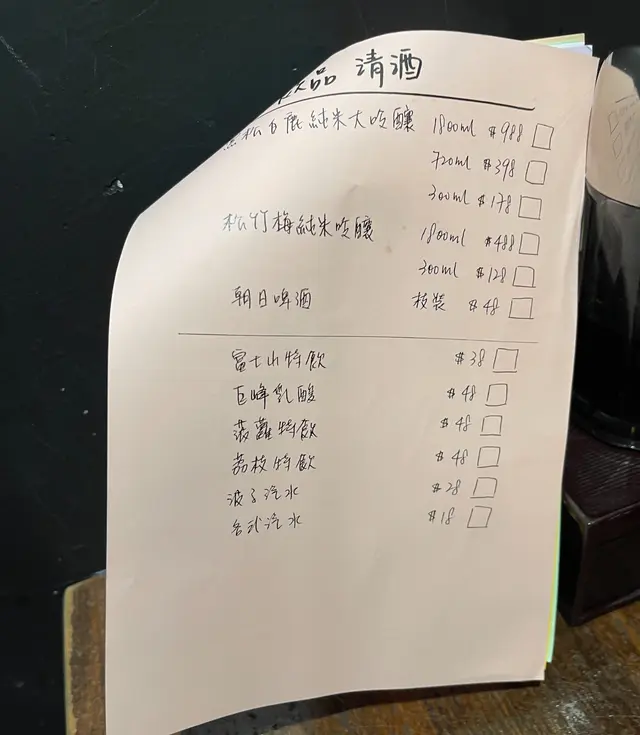 品 清酒
松白鹿純米大吟釀 1800ml $988
720ml $398
300ml $178
松竹梅純米吟釀 1800ml $488
300ml $128
朝日啤酒 枝裝 $48
富士山特飲 $38
巨峰乳酸 $48
菠蘿特飲 $48
荔枝特飲 $48
波子汽水 $28
各式汽水 $18